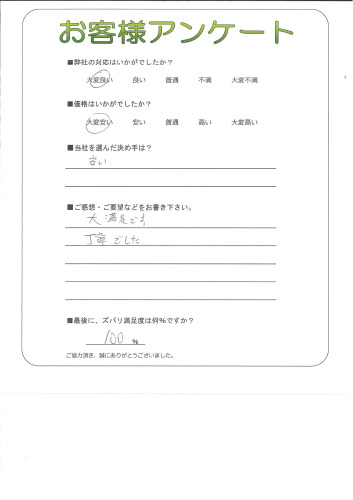 お客様アンケート
■弊社の対応はいかがでしたか？
大変良い 良い 普通 不満 大変不満
■価格はいかがでしたか？
大変安い 安い 普通 高い 大変高い
■当社を選んだ決め手は？
安い
■ご感想・ご要望などをお書き下さい。
大満足です。
丁寧でした
■最後に、ズバリ満足度は何%ですか？
100 %
ご協力頂き、誠にありがとうございました。